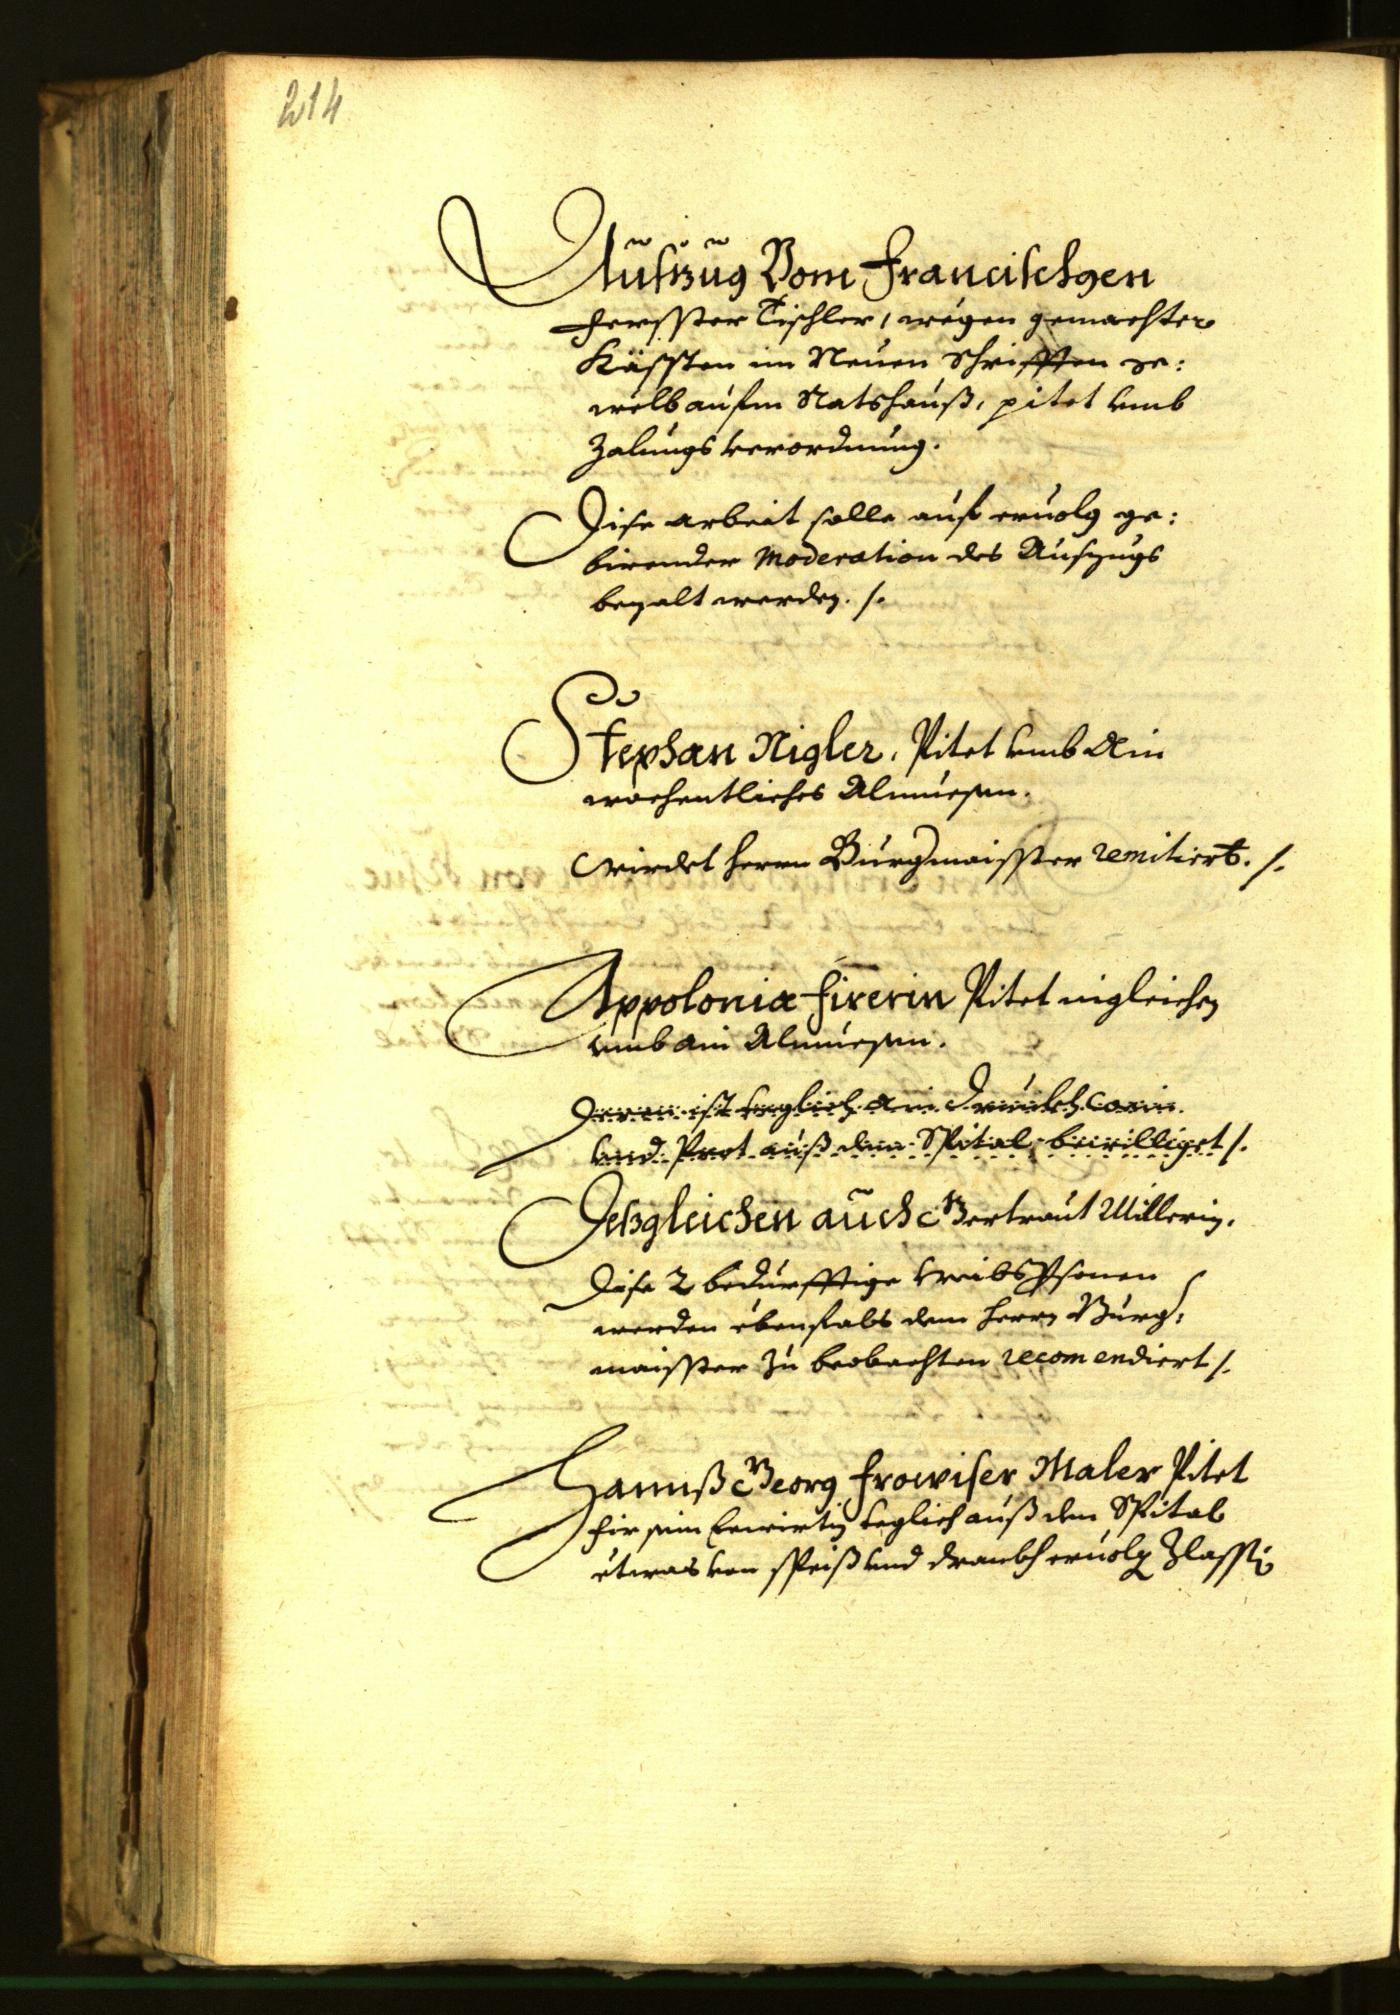 214
Außzug Vom Francischgen
Ferster Tischler, wegen gemachter
Kässten im Neuen Schrifften ge:
welb aufm Ratshauß, pitet umb
Zalungs verordnung.
Dise arbeit solle auf ervolg ge:
birender Moderation des Auszugs
bezalt werden. /.
Stephan Nigler, Pitet umb Ain
wochentliches Almuesen.
Wirdet herrn Burgmaisster remitiert. /.
Appolonia Firerin Pitet ingleichen
umb ain Almuesen.
Deren ist teglich ain Trunkh Wein
und Prot auß dem Spital bewilliget /.
Deßgleichen auch Gertraut Millerin.
Dise 2 bedurfftige weibsPsonen
werden ebenfals dem herrn Burg:
maisster zu beobachten recomendiert /.
Hannß Georg Frowiser Maler Pitet
fir sein Ewirtin teglich auß dem Spital
etwas von Speiß und dranckh ervolg Zlassen